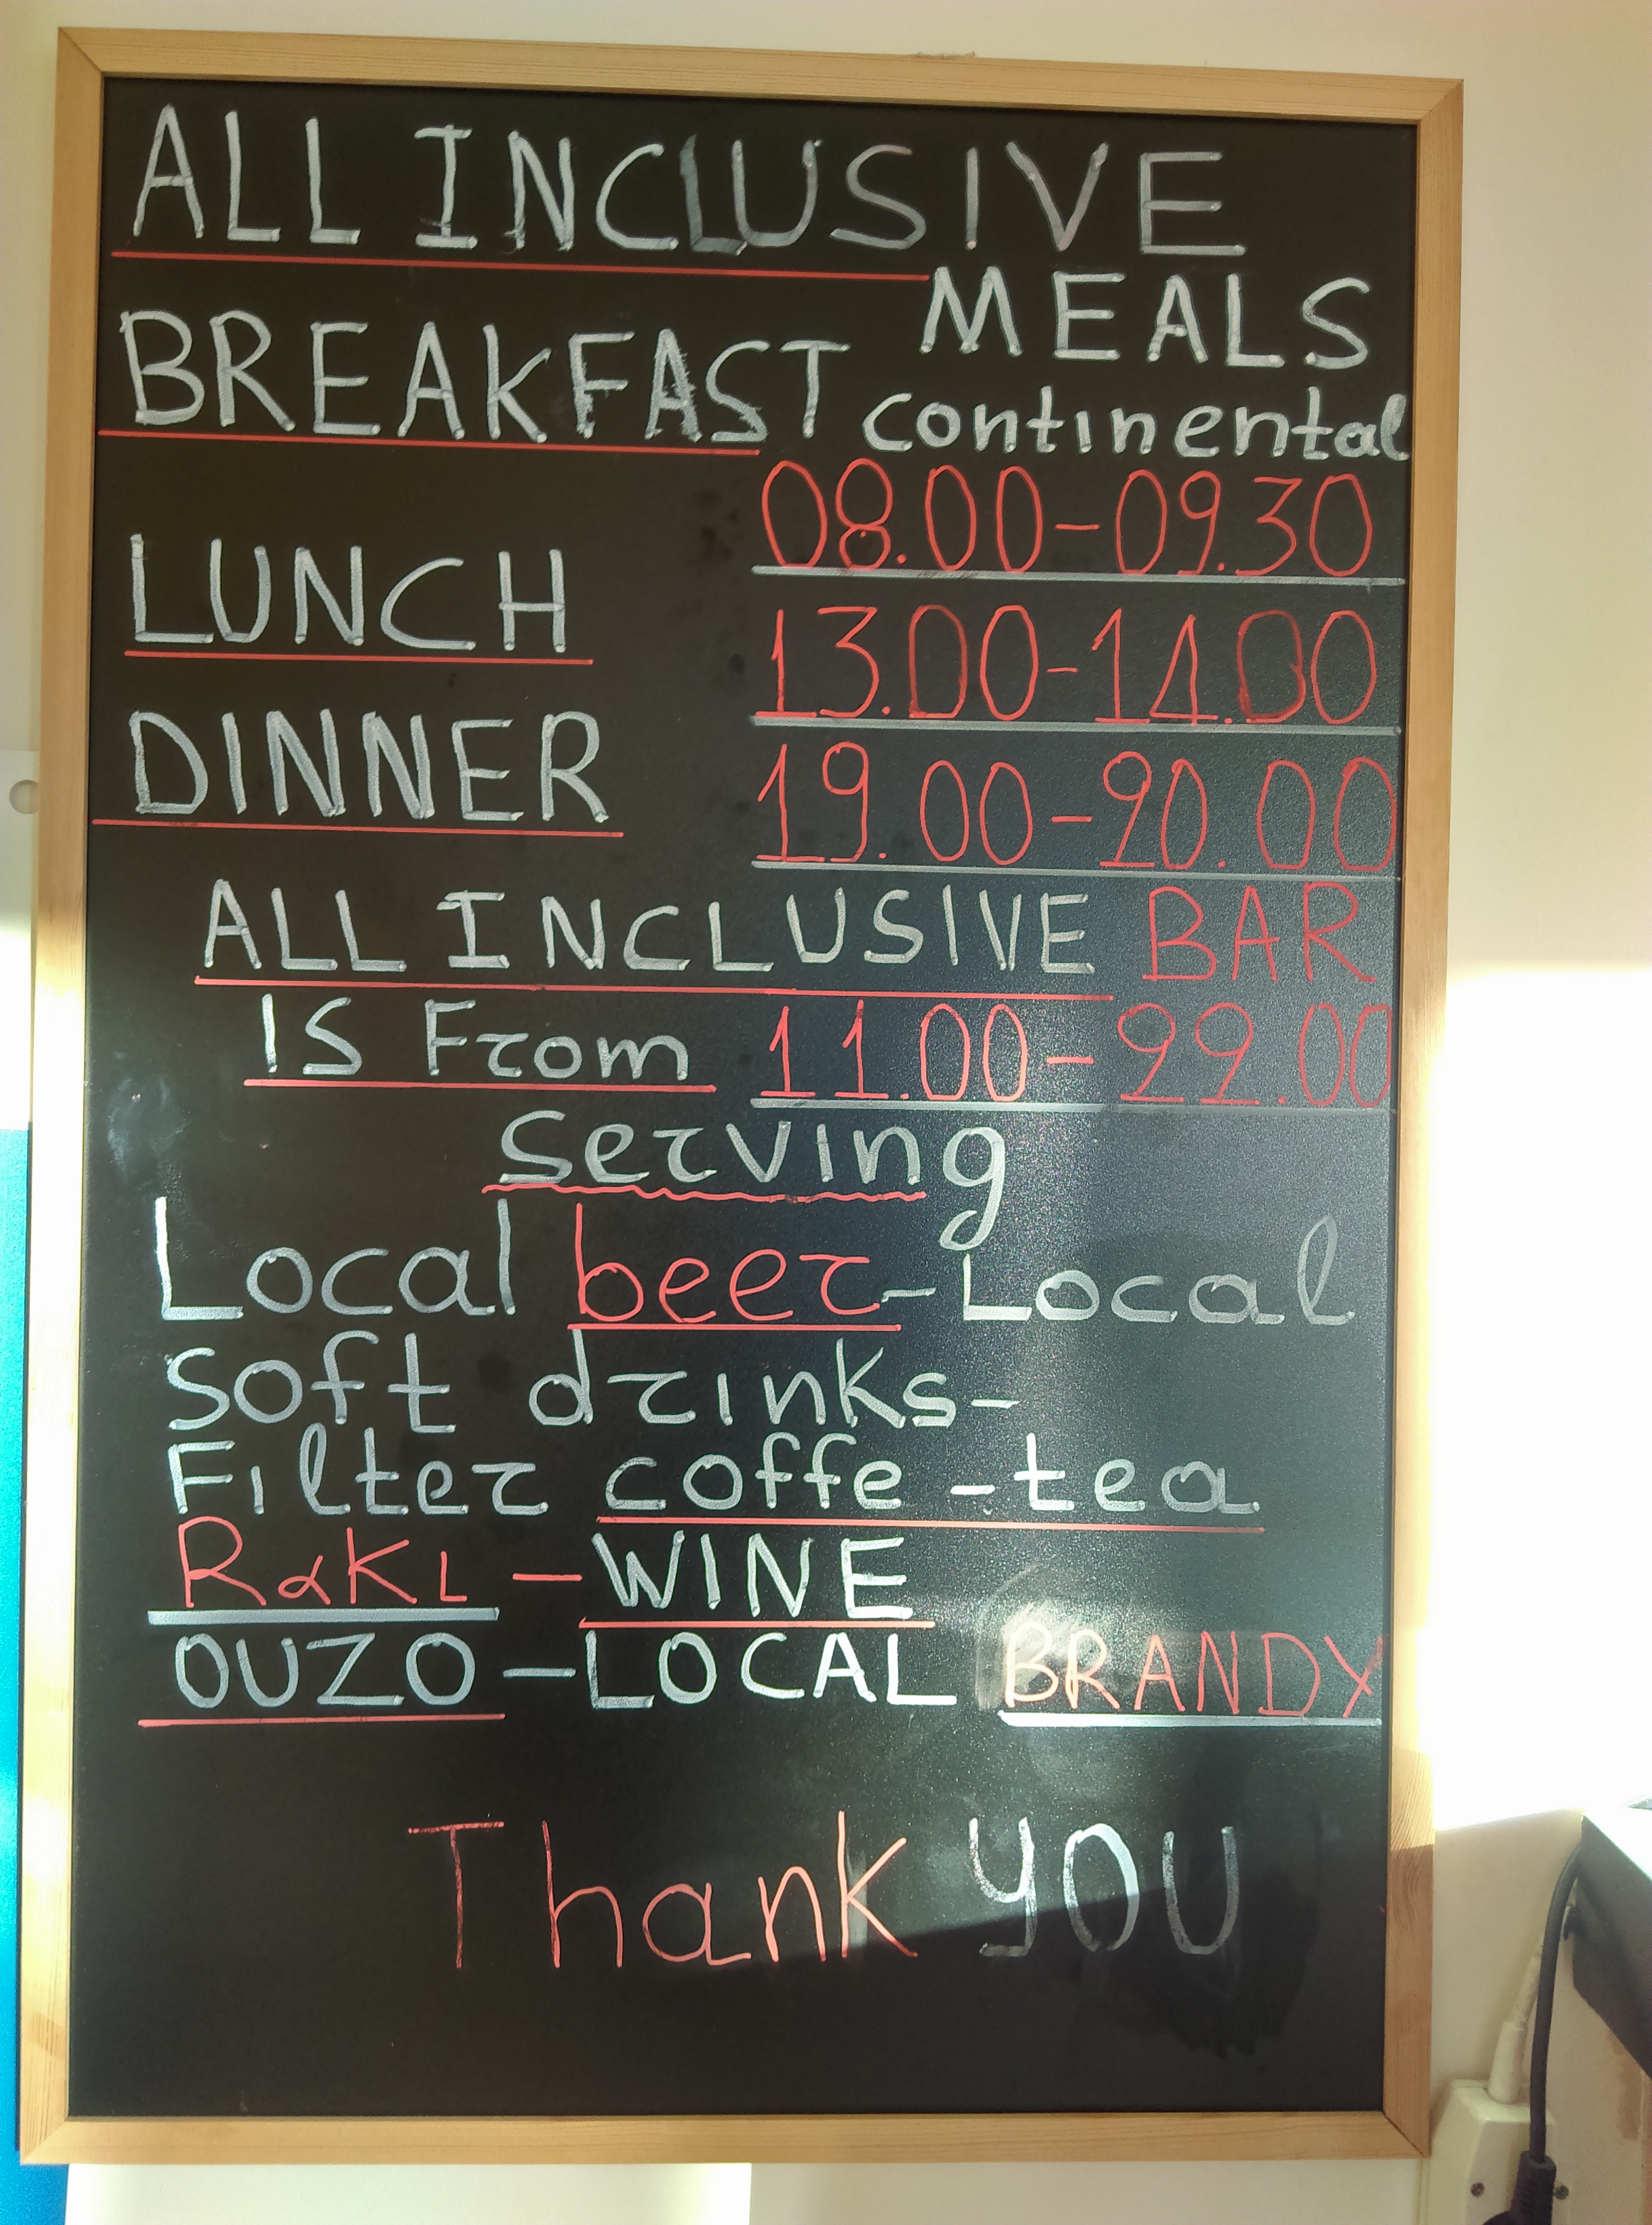 ALL INCLUSIVE
MEALS
BREAKFAST continental
08.00-09.30
LUNCH
13.00-14.00
DINNER
19.00-20.00
ALL INCLUSIVE BAR
IS From 11.00-22.00
Serving
Local beer-Local
Soft drinks-
Filter coffe-tea
RαKι-WINE
OUZO-LOCAL BRANDY
Thank you